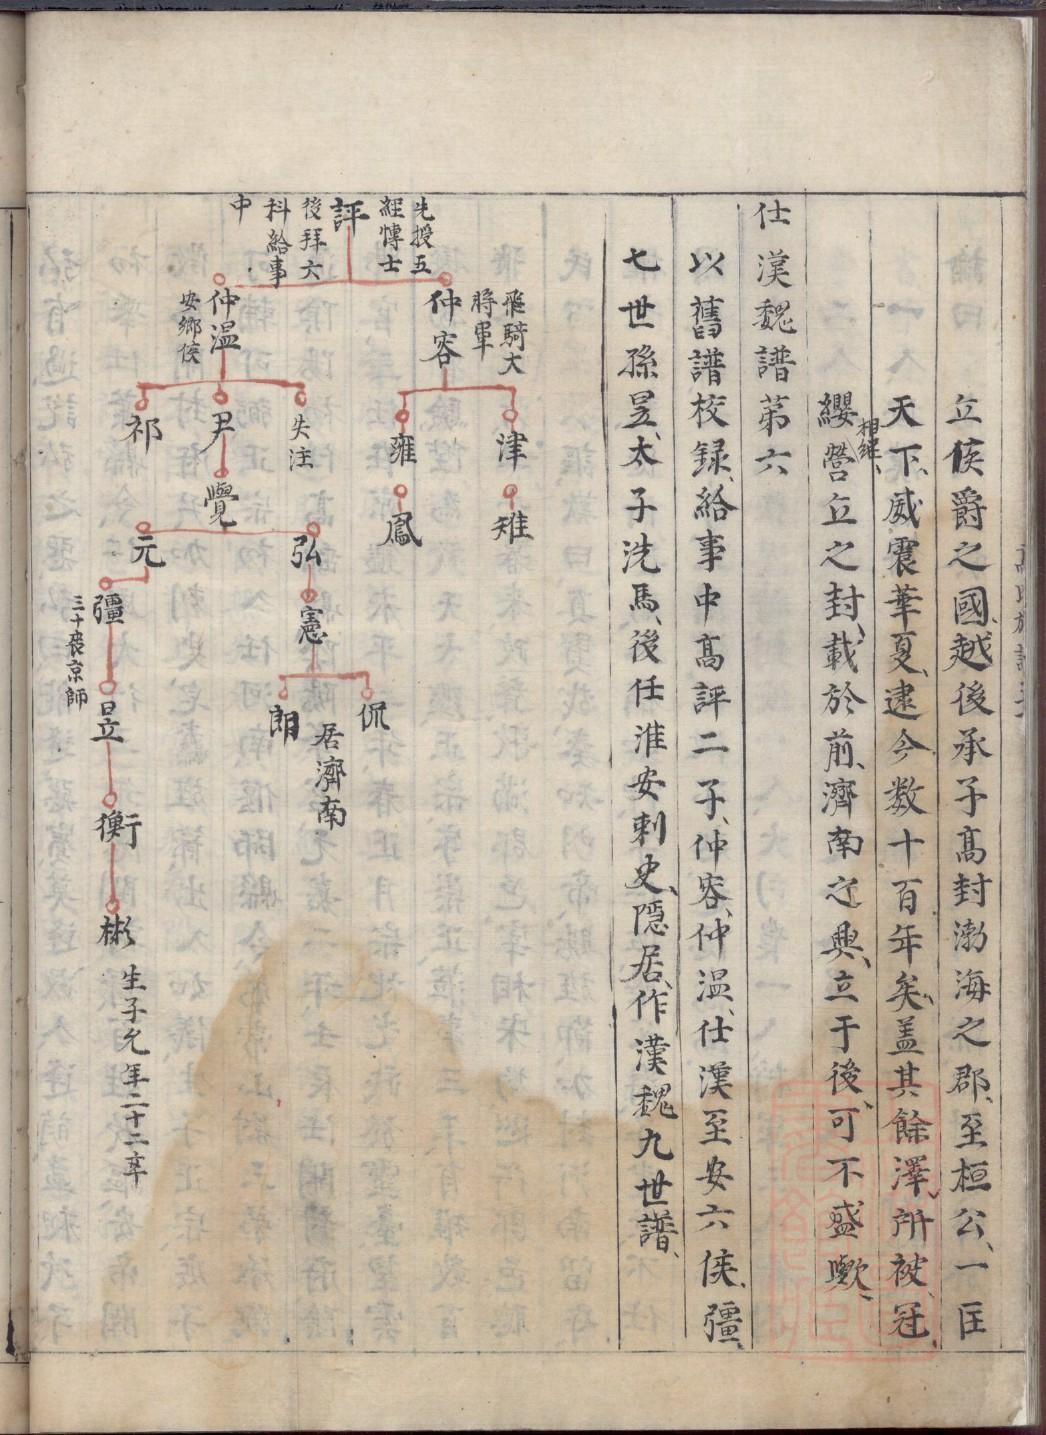 立侯爵之國、越後承子高封渤海之郡、至桓公、一匡
天下、威震華夏、逮今数十百年矣、盖其餘澤、所被、冠、
纓営立之封、載於前、濟南之興、立于後、可不盛歟、
相継、
仕漢魏譜第六
以舊譜校録、給事中高評二子、仲容、仲温、仕漢至安六侯、彊、
七世孫昱、太子洗馬、後任淮安刺史、隠居、作漢魏九世譜、
先授五
經博士
評
後拜六
科給事
中
飛騎大
將軍
仲容
仲温
安鄉侯
津
雉
雍
鳳
失注
尹
祁
覺
弘
元
憲
侃
居濟南
朗
彊
三十喪京師
昱
衡
彬
生子允年二十二卒